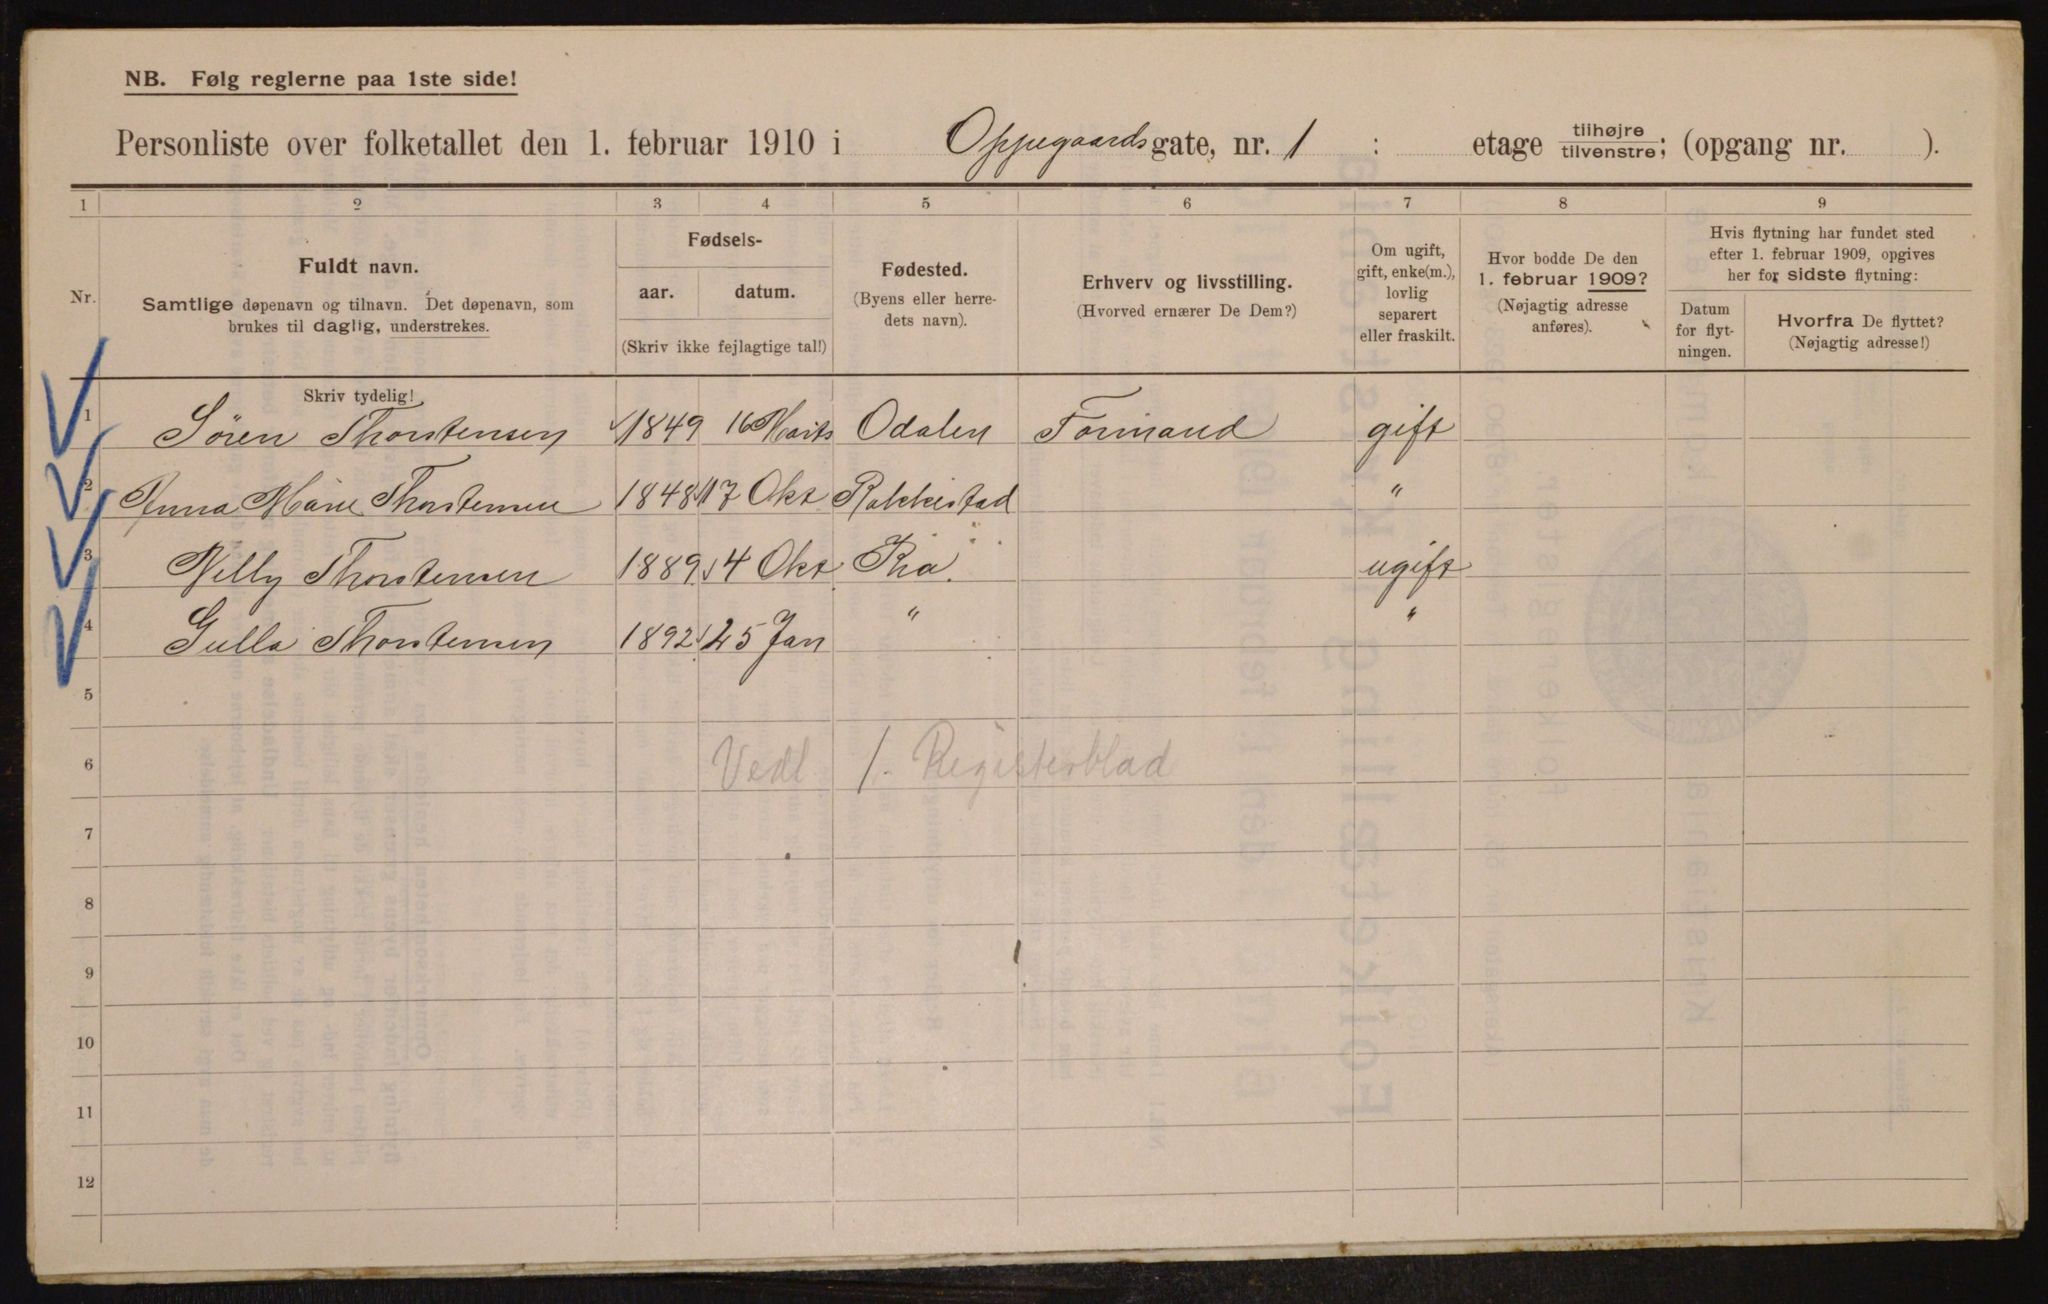 NB. Følg reglerne paa 1ste side!
Personliste over folketallet den 1. februar 1910 i Oppegaardsgate, nr. 1 : etage tilhøjre/tilvenstre; (opgang nr. ).
1 2 3 4 5 6 7 8 9
Nr.
Fuldt navn.
Samtlige døpenavn og tilnavn. Det døpenavn, som
brukes til daglig, understrekes.
Fødsels-
aar. datum.
(Skriv ikke fejlagtige tal!)
Fødested.
(Byens eller herre-
dets navn).
Erhverv og livsstilling.
(Hvorved ernærer De Dem?)
Om ugift,
gift, enke(m.),
lovlig
separert
eller fraskilt.
Hvor bodde De den
1. februar 1909?
(Nøjagtig adresse
anføres).
Hvis flytning har fundet sted
efter 1. februar 1909, opgives
her for sidste flytning:
Datum
for flyt-
ningen.
Hvorfra De flyttet?
(Nøjagtig adresse!)
Skriv tydelig!
1 Sören Thorstensen 1849 16 Marts Odalen Formand gift
2 Anna Marie Thorstensen 1848 17 Okt Rakkestad "
3 Nelly Thorstensen 1889 4 Okt Kia. ugift
4 Gulla Thorstensen 1892 25 Jan " "
5
6 Vedl 1. Registerblad
7
8
9
10
11
12